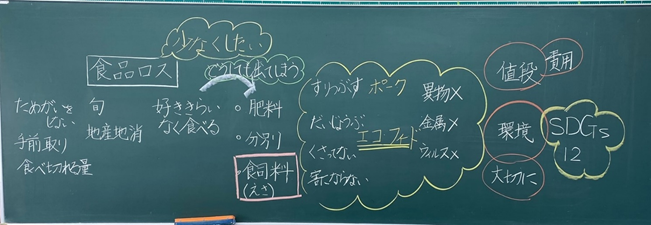 少なくしたい
食品ロス
どうしても出てしまう
ためがいを
しない
手前取り
食べ切れる量
旬
地産地消
好ききらい
なく食べる
・肥料
・分別
・飼料
(えさ)
すりつぶす
だいじょうぶ
くさってない
害にならない
ポーク
エコフィード
異物×
金属×
ウィルス×
値段
費用
環境
大切に
SDGs
12